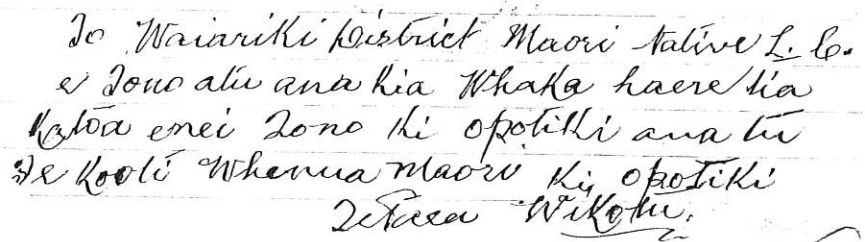 To Waiariki District Maori Native L. C.
e Tono atu ana kia Whaka haere tia
Katoa enei Tono ki opotiki ana tu
Te Kooti Whenua Maori Ki opotiki
Wikotu.